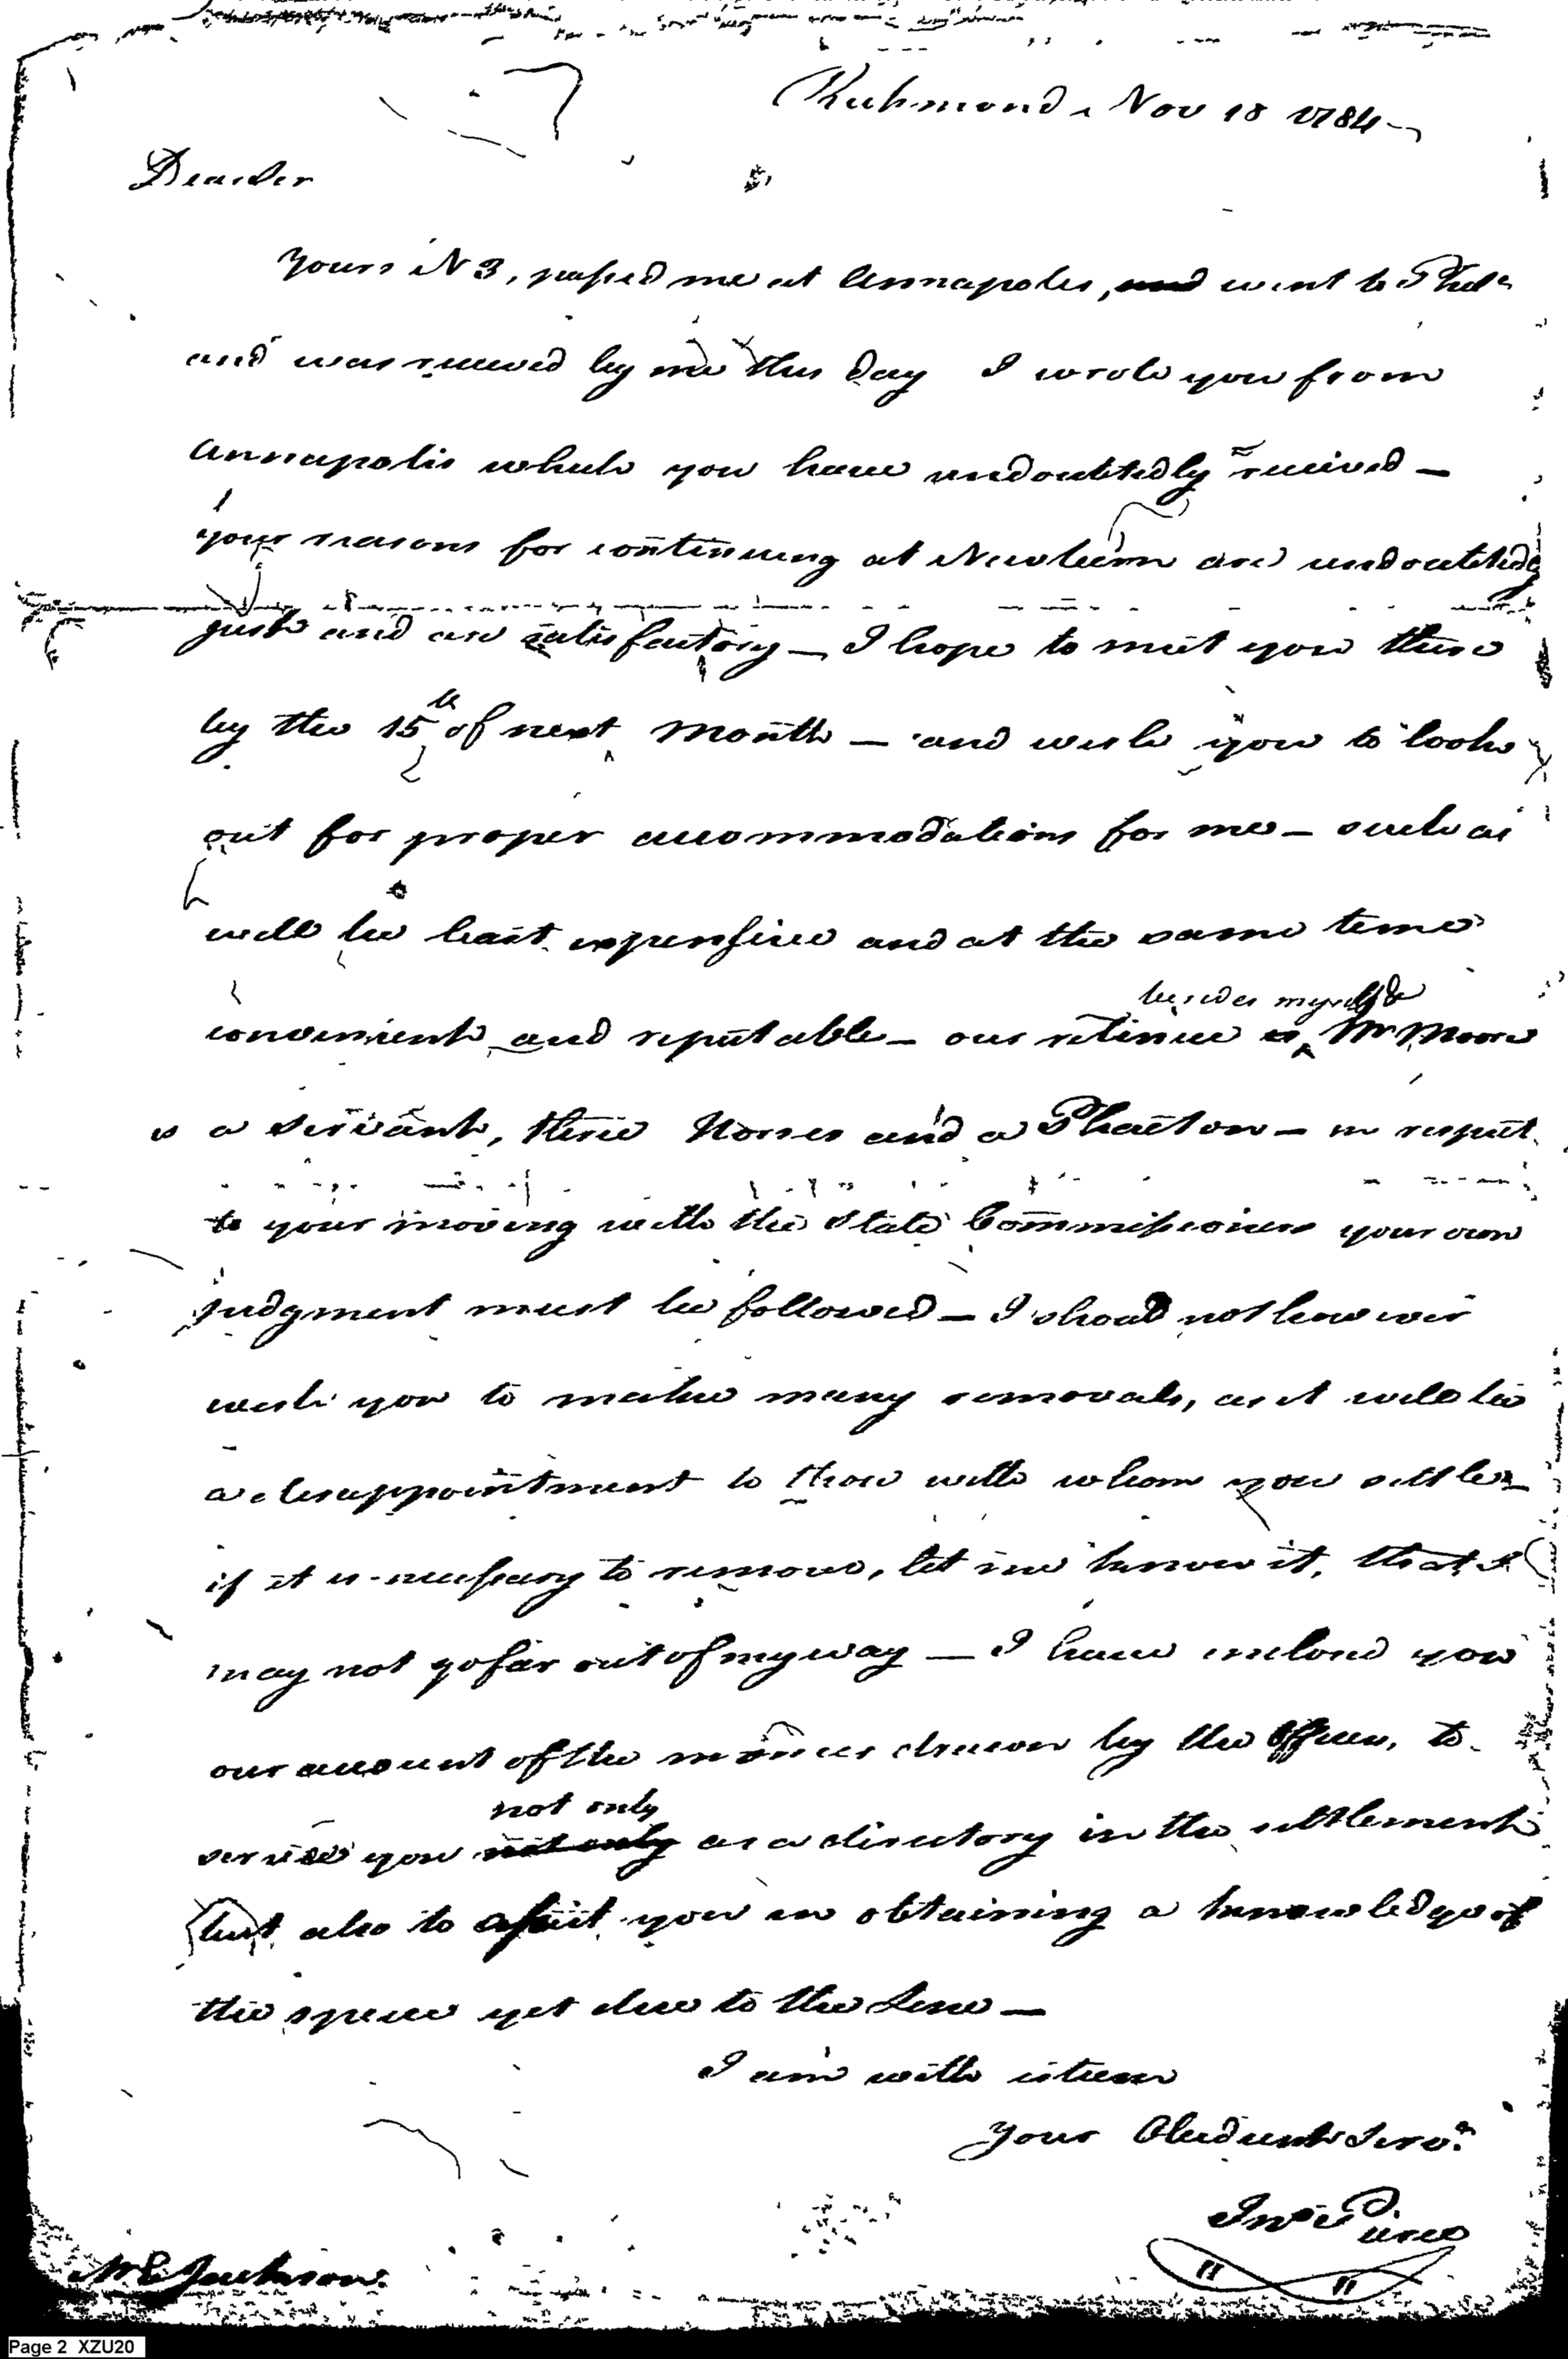 Richmond, Nov 18 1784-
Dear Sir
Yours N 3, passed me at Annapolis, and went to Phila
and was received by me this day I wrote you from
Annapolis which you have undoubtedly received -
your reasons for continuing at Newbern are undoubtedly
just and are satisfactory - I hope to meet you there
by the 15th of next Month - and wish you to look
out for proper accommodations for me - such as
will be least expensive and at the same time
besides myself &
convenient and reputable - our retinue is Mr Moore
is a Servant, three Horses and a Phaeton - in respect
to your moving with the State Commissioners your own
judgment must be followed - I should not however
wish you to make many removals, as it will be
a disappointment to those with whom you settle -
if it is necessary to remove, let me know it, that I
may not go far out of my way - I have inclosed you
our account of the monies drawn by the Officers, to
not only
service you not only as a directory in the settlement
but also to assist you in obtaining a knowledge of
the specie yet due to the Line -
I am with esteem
your Obedient Servt
Jno Pierce
Mr E Jackson.
Page 2 XZU20